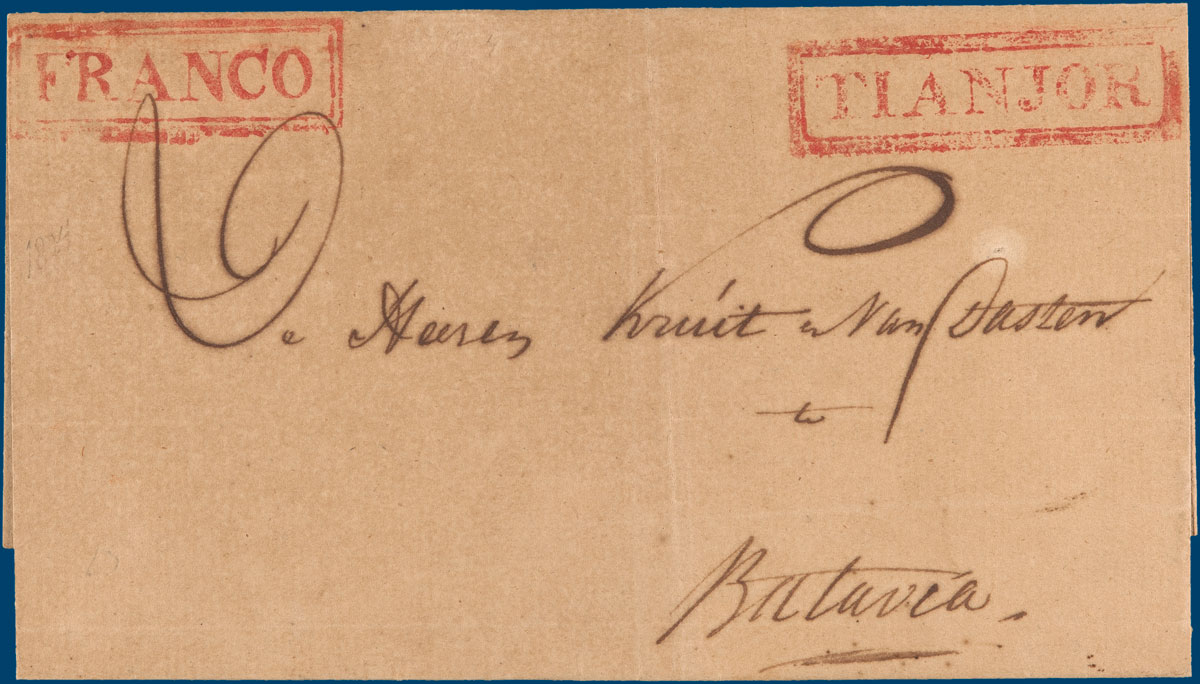 FRANCO
TIANJOR
1825
De Heeren Kruit en Van Dasten
te
Batavia.